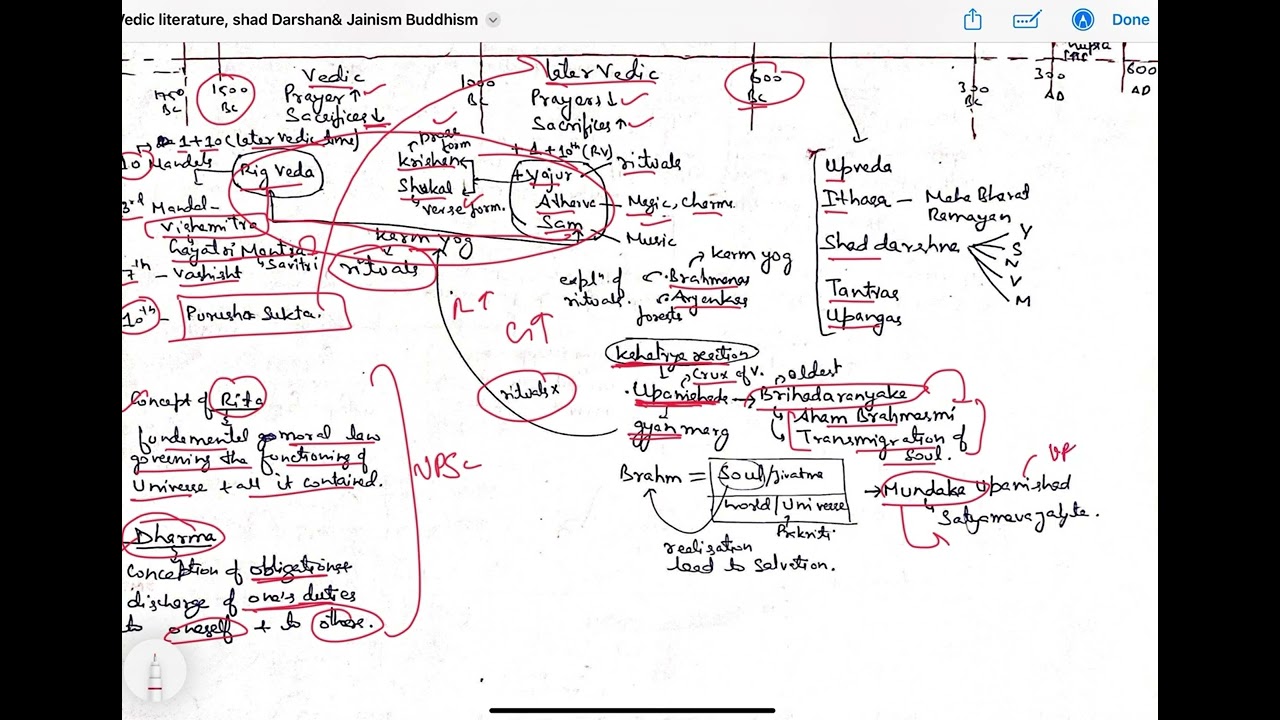 Vedic literature, shad Darshan& Jainism Buddhism
Done
1750 BC
1500 BC
Vedic
Prayer ↑
Sacrifices ↓
1000 BC
Later Vedic
Prayers ↓
Sacrifices ↑
600 BC
300 BC
300 AD
Gupta
600 AD
1+10 (later vedic time)
10 Mandels
Rig Veda
3rd Mandal -
Vishamitra
Gayatri Mantra
Savitri
7th - Vashisht
10th - Purusha Sukta.
Prose form
Krishen
Shukal
verse form.
+ 1 + 10th (RV)
+ Yajur - rituals
Atharva - Magic, charm
Sam - Music
karm yog
rituals
R ↑
G ↑
rituals x
expln of rituals.
Brahmenas
karm yog
Aryenkas
forests
Kshatriya reaction
Crux of V.
Upanishads → Brihadaranyake
oldest
gyan marg
Aham Brahmasmi
Transmigration of Soul.
Brahm = Soul/Jivatma
World/Universe
Prakriti
realisation
lead to salvation.
→ Mundaka Upanishad
UP
Satyamava jayte.
Upveda
Ithasa - Maha Bharat
Ramayan
Shad darshna
Y
S
N
V
M
Tantras
Upangas
Concept of Rita
fundemental moral law
governing the functioning of
Universe + all it contained.
UPSC
Dharma
Conception of obligations
discharge of one's duties
to oneself + to others.